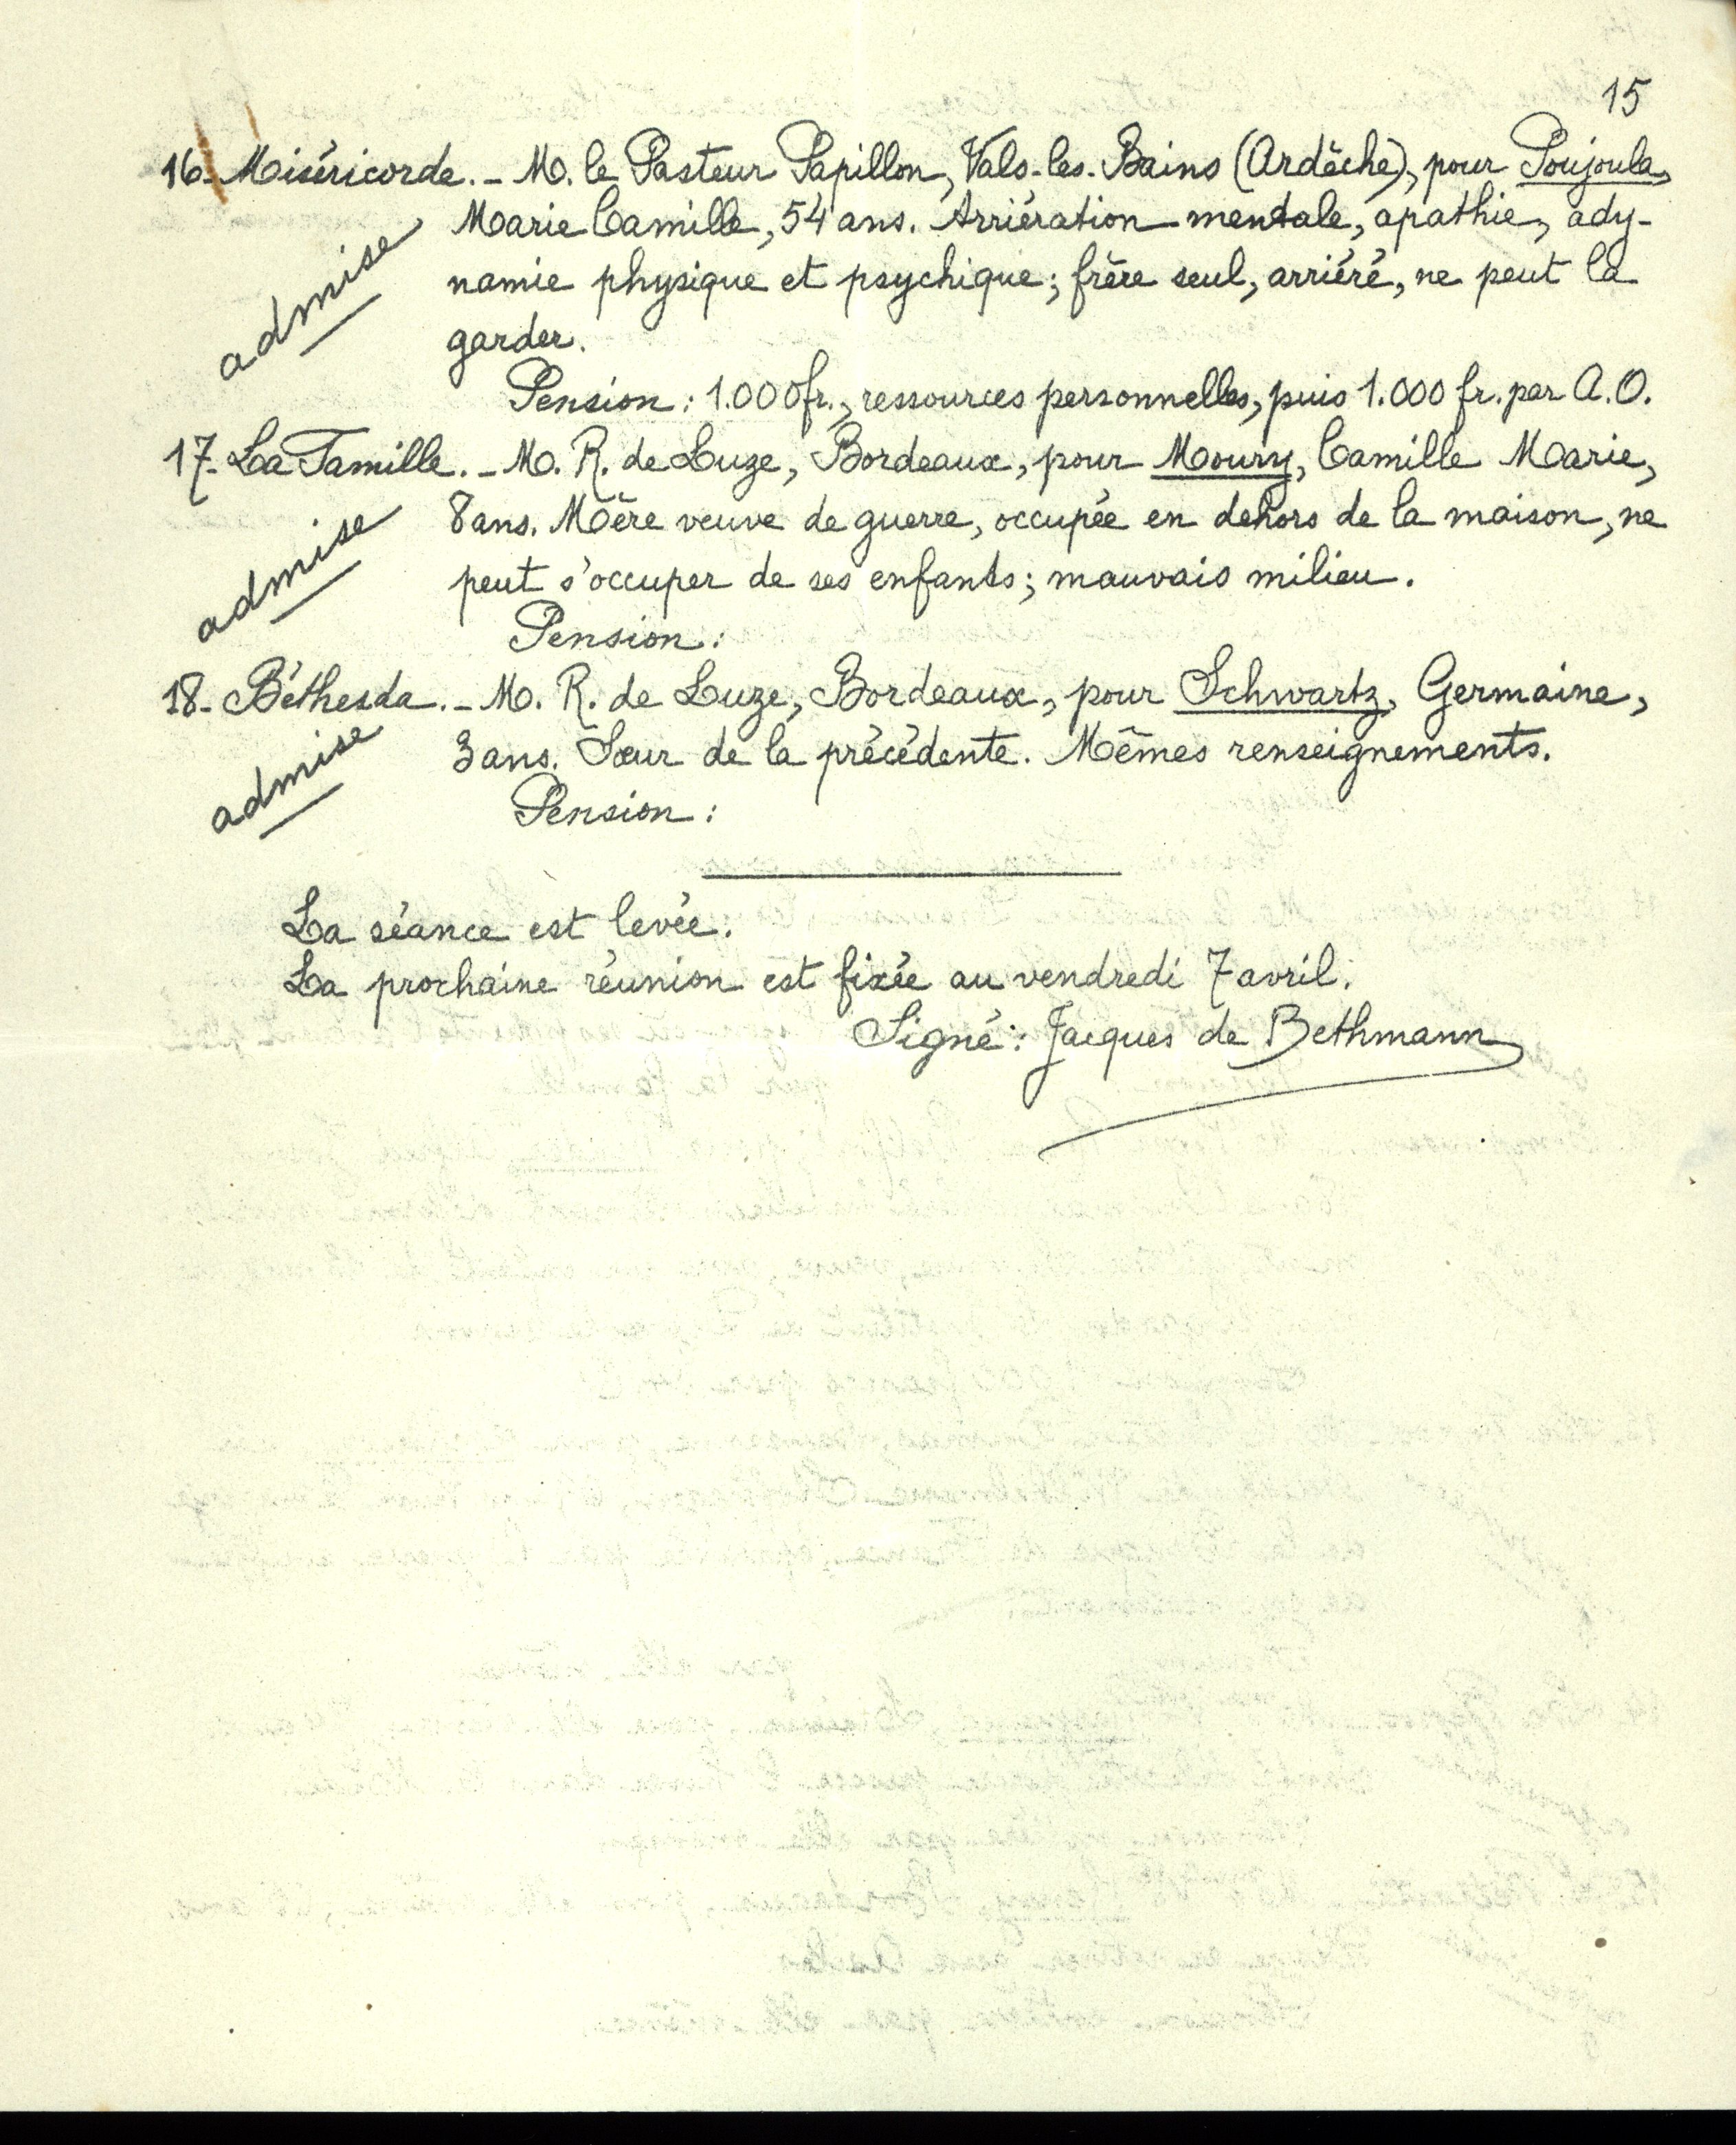 15
16. Miséricorde. - M. le Pasteur Papillon, Vals-les-Bains (Ardèche), pour Poujoula,
admise
Marie Camille, 54 ans. Arriération mentale, apathie, ady-
namie physique et psychique; frère seul, arriéré, ne peut la
garder.
Pension: 1.000 fr., ressources personnelles, puis 1.000 fr. par A.O.
17. La Famille. - M. R. de Luze, Bordeaux, pour Moury, Camille Marie,
admise
8 ans. Mère veuve de guerre, occupée en dehors de la maison, ne
peut s'occuper de ses enfants; mauvais milieu.
Pension:
18. Béthesda. - M. R. de Luze, Bordeaux, pour Schwartz, Germaine,
admise
3 ans. Sœur de la précédente. Mêmes renseignements.
Pension:
La séance est levée.
La prochaine réunion est fixée au vendredi 7 avril.
Signé: Jacques de Bethmann